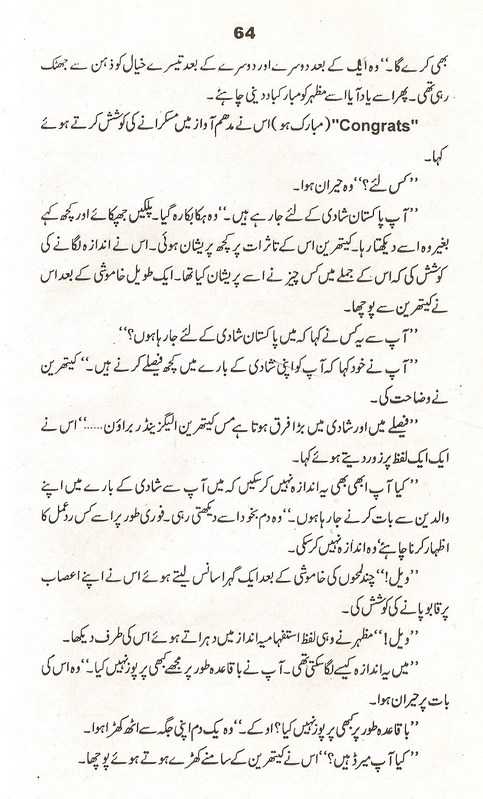 64
بھی کرے گا۔‘‘ وہ ایک کے بعد دوسرے اور دوسرے کے بعد تیسرے خیال کو ذہن سے جھٹک
رہی تھی۔ پھر اسے یاد آیا اسے مظہر کو مبارکباد دینی چاہئے۔
"Congrats" (مبارک ہو) اس نے مدھم آواز میں مسکرانے کی کوشش کرتے ہوئے
کہا۔
’’کس لئے؟‘‘ وہ حیران ہوا۔
’’آپ پاکستان شادی کے لئے جا رہے ہیں۔‘‘ وہ ہکا بکا رہ گیا۔ پلکیں جھپکائے اور کچھ کہے
بغیر وہ اسے دیکھتا رہا۔ کیتھرین اس کے تاثرات پر کچھ پریشان ہوئی۔ اس نے اندازہ لگانے کی
کوشش کی کہ اس کے جملے میں کس چیز نے اسے پریشان کیا تھا۔ ایک طویل خاموشی کے بعد اس
نے کیتھرین سے پوچھا۔
’’آپ سے یہ کس نے کہا کہ میں پاکستان شادی کے لئے جا رہا ہوں؟‘‘
’’آپ نے خود کہا کہ آپ کو اپنی شادی کے بارے میں کچھ فیصلے کرنے ہیں۔‘‘ کیتھرین
نے وضاحت کی۔
’’فیصلے میں اور شادی میں بڑا فرق ہوتا ہے مس کیتھرین الیگزینڈر براؤن.....‘‘ اس نے
ایک ایک لفظ پر زور دیتے ہوئے کہا۔
’’کیا آپ ابھی بھی یہ اندازہ نہیں کر سکیں کہ میں آپ سے شادی کے بارے میں اپنے
والدین سے بات کرنے جا رہا ہوں۔‘‘ وہ دم بخود اسے دیکھتی رہی۔ فوری طور پر اسے کس ردعمل کا
اظہار کرنا چاہئے‘ وہ اندازہ نہیں کر سکی۔
’’ویل!‘‘ چند لمحوں کی خاموشی کے بعد ایک گہرا سانس لیتے ہوئے اس نے اپنے اعصاب
پر قابو پانے کی کوشش کی۔
’’ویل!‘‘ مظہر نے وہی لفظ استفہامیہ انداز میں دہراتے ہوئے اس کی طرف دیکھا۔
’’میں یہ اندازہ کیسے لگا سکتی تھی۔ آپ نے باقاعدہ طور پر مجھے کبھی پرپوز نہیں کیا۔‘‘ وہ اس کی
بات پر حیران ہوا۔
’’باقاعدہ طور پر کبھی پرپوز نہیں کیا؟ اوکے۔‘‘ وہ یک دم اپنی جگہ سے اٹھ کھڑا ہوا۔
’’کیا آپ میرڈ ہیں؟‘‘ اس نے کیتھرین کے سامنے کھڑے ہوتے ہوئے پوچھا۔